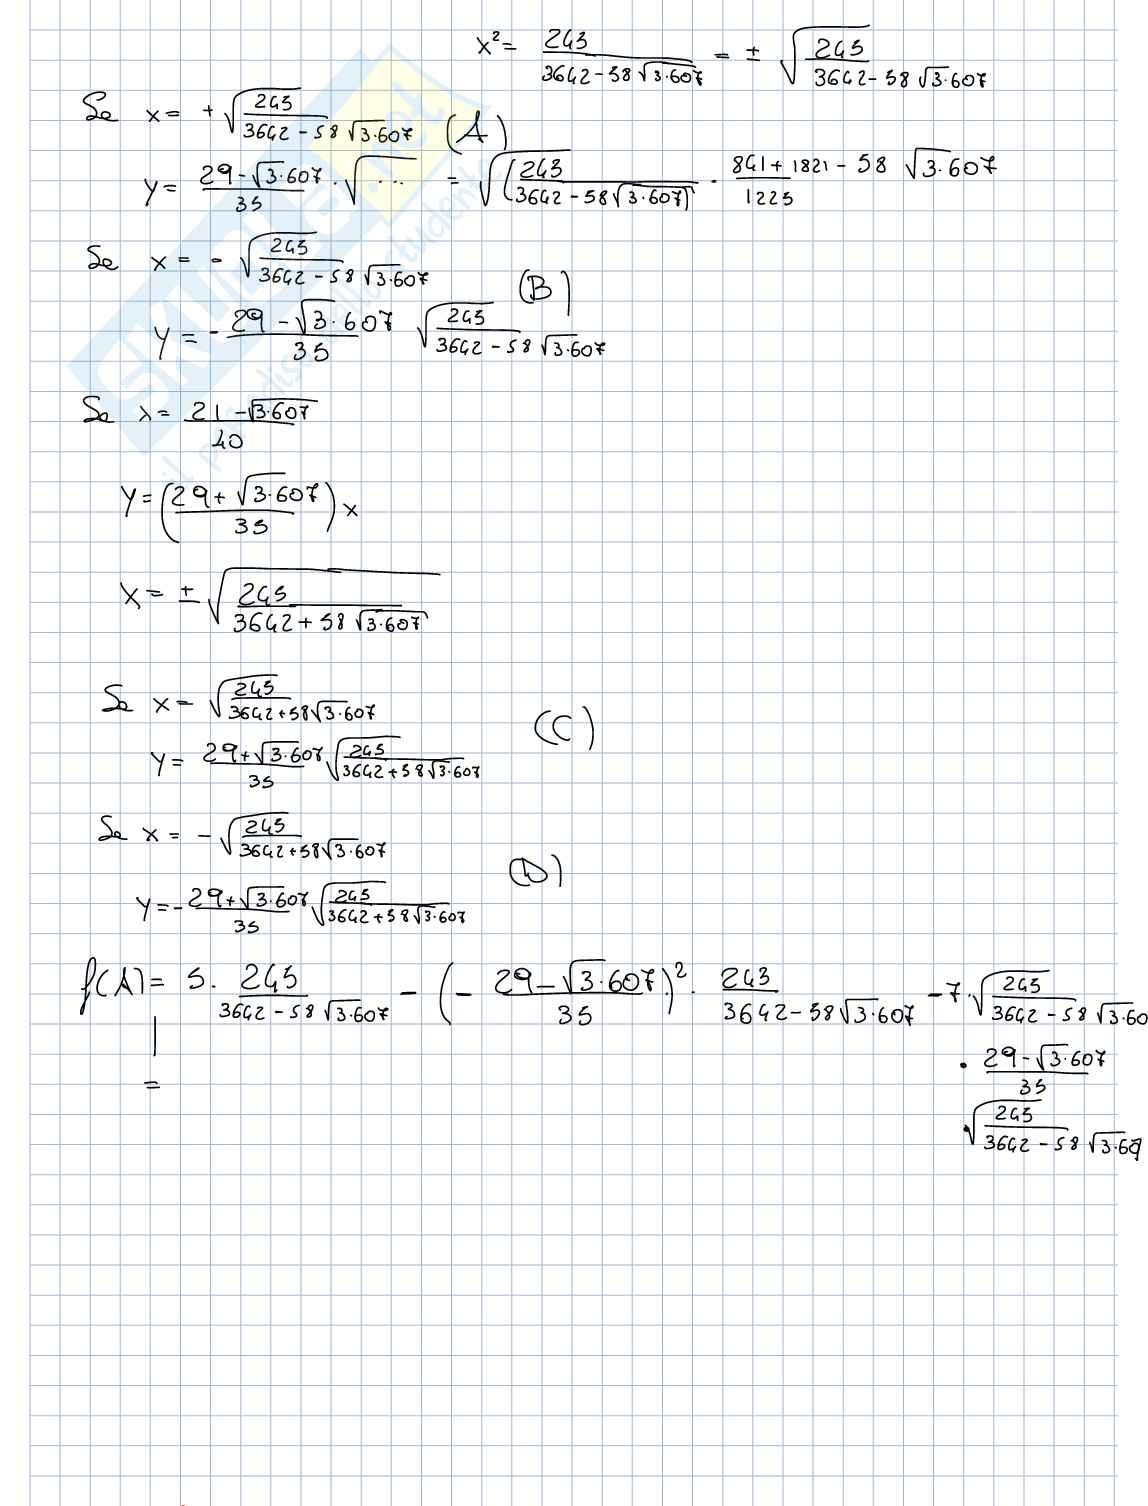 x² = 245/(3642-58√3·607) = ± √(245/(3642-58√3·607))
Se x = + √(245/(3642-58√3·607)) (A)
y = (29-√3·607)/35 · √... = √((245/(3642-58√3·607)) · (841+1821-58√3·607)/1225
Se x = - √(245/(3642-58√3·607)) (B)
y = - (29-√3·607)/35 √(245/(3642-58√3·607))
Se λ = (21-√3·607)/40
y = ((29+√3·607)/35) x
x = ± √(245/(3642+58√3·607))
Se x = √(245/(3642+58√3·607)) (C)
y = (29+√3·607)/35 √(245/(3642+58√3·607))
Se x = - √(245/(3642+58√3·607)) (D)
y = - (29+√3·607)/35 √(245/(3642+58√3·607))
f(A) = 5 · 245/(3642-58√3·607) - (- (29-√3·607)/35)² · 245/(3642-58√3·607) - 7 · √(245/(3642-58√3·60
· (29-√3·607)/35
· √(245/(3642-58√3·60
=
SKUOLA.net